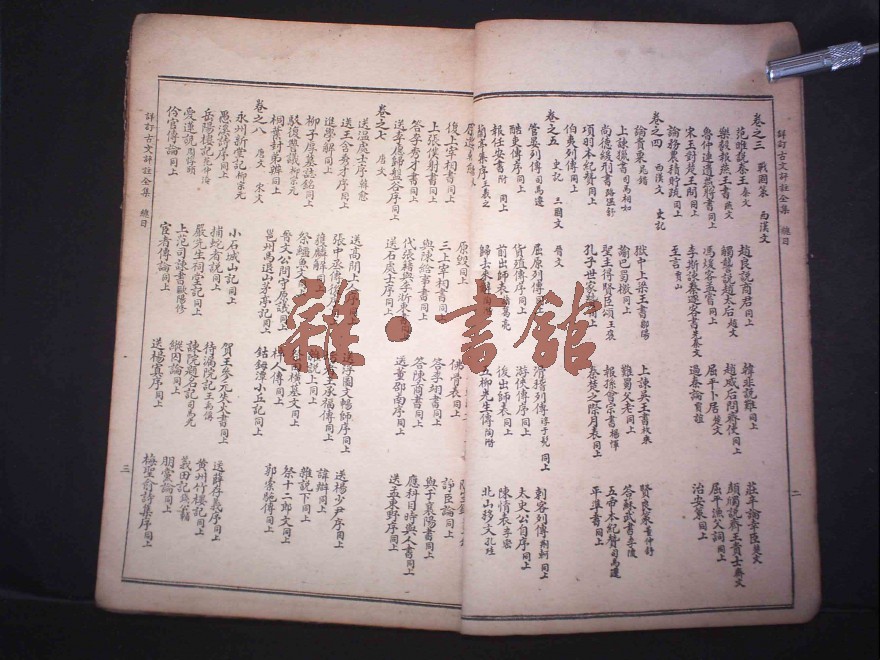 詳訂古文評註全集 總目
二
卷之三 戰國策 西漢文
范雎說秦王秦文 趙良說商君同上 韓非說難同上 莊辛論幸臣楚文
樂毅報燕王書燕文 觸讋說趙太后趙文 趙威后問齊使同上 顏斶說齊王貴士齊文
魯仲連遺燕將書同上 馮煖客孟嘗同上 屈平卜居楚文 屈平漁父詞同上
宋玉對楚王問同上 李斯諫秦逐客書先秦文 過秦論賈誼 治安策同上
論務農積貯疏同上 至言賈山
卷之四 西漢文 史記
論貴粟晁錯 獄中上梁王書鄒陽 上諫吳王書枚乘 賢良策董仲舒
上諫獵書司馬相如 諭巴蜀檄同上 難蜀父老同上 答蘇武書李陵
尚德緩刑書路溫舒 聖主得賢臣頌王褒 報孫會宗書楊惲 五帝本紀贊司馬遷
項羽本紀贊同上 孔子世家贊同上 秦楚之際月表同上 平準書同上
伯夷列傳同上
卷之五 史記 三國文 晉文
管晏列傳司馬遷 屈原列傳同上 滑稽列傳淳于髡 同上 刺客列傳荊軻 同上
酷吏傳序同上 貨殖傳序同上 游俠傳序同上 太史公自序同上
報任安書附 同上 前出師表諸葛亮 後出師表同上 陳情表李密
蘭亭集序王羲之 歸去來辭 五柳先生傳陶潛 北山移文孔珪
原毀同上 佛骨表同上
復上宰相書同上 三上宰相書同上 諍臣論同上
上張僕射書同上 與陳給事書同上 答李翊書同上 與于襄陽書同上
答李秀才書同上 代張籍與李浙東書同上 答陳商書同上 應科目時與人書同上
送李愿歸盤谷序同上 送石處士序同上 送董邵南序同上 送孟東野序同上
卷之七 唐文
送溫處士序韓愈 送高閒上人序同上 送浮圖文暢師序同上 送楊少尹序同上
送王含秀才序同上 張中丞傳後 王承福傳同上 諱辯同上
進學解同上 獲麟解同上 雜說上同上 雜說下同上
柳子厚墓誌銘同上 祭鱷魚文同上 田橫墓文同上 祭十二郎文同上
駁復讐議柳宗元 晉文公問守原議同上 梓人傳同上 郭橐駝傳同上
桐葉封弟辨同上 邕州馬退山茅亭記同上 鈷鉧潭小丘記同上
卷之八 唐文 宋文
永州新堂記柳宗元 小石城山記同上 賀王參元失火書同上 送薛存義序同上
愚溪詩序同上 捕蛇者說同上 待漏院記王禹偁 黃州竹樓記同上
岳陽樓記范仲淹 嚴先生祠堂記同上 諫院題名記司馬光 義田記錢公輔
愛蓮說周惇頤 上范司諫書歐陽修 縱囚論同上 朋黨論同上
伶官傳論同上 宦者傳論同上 送楊寘序同上 梅聖俞詩集序同上
詳訂古文評註全集 總目
三
雜·書館